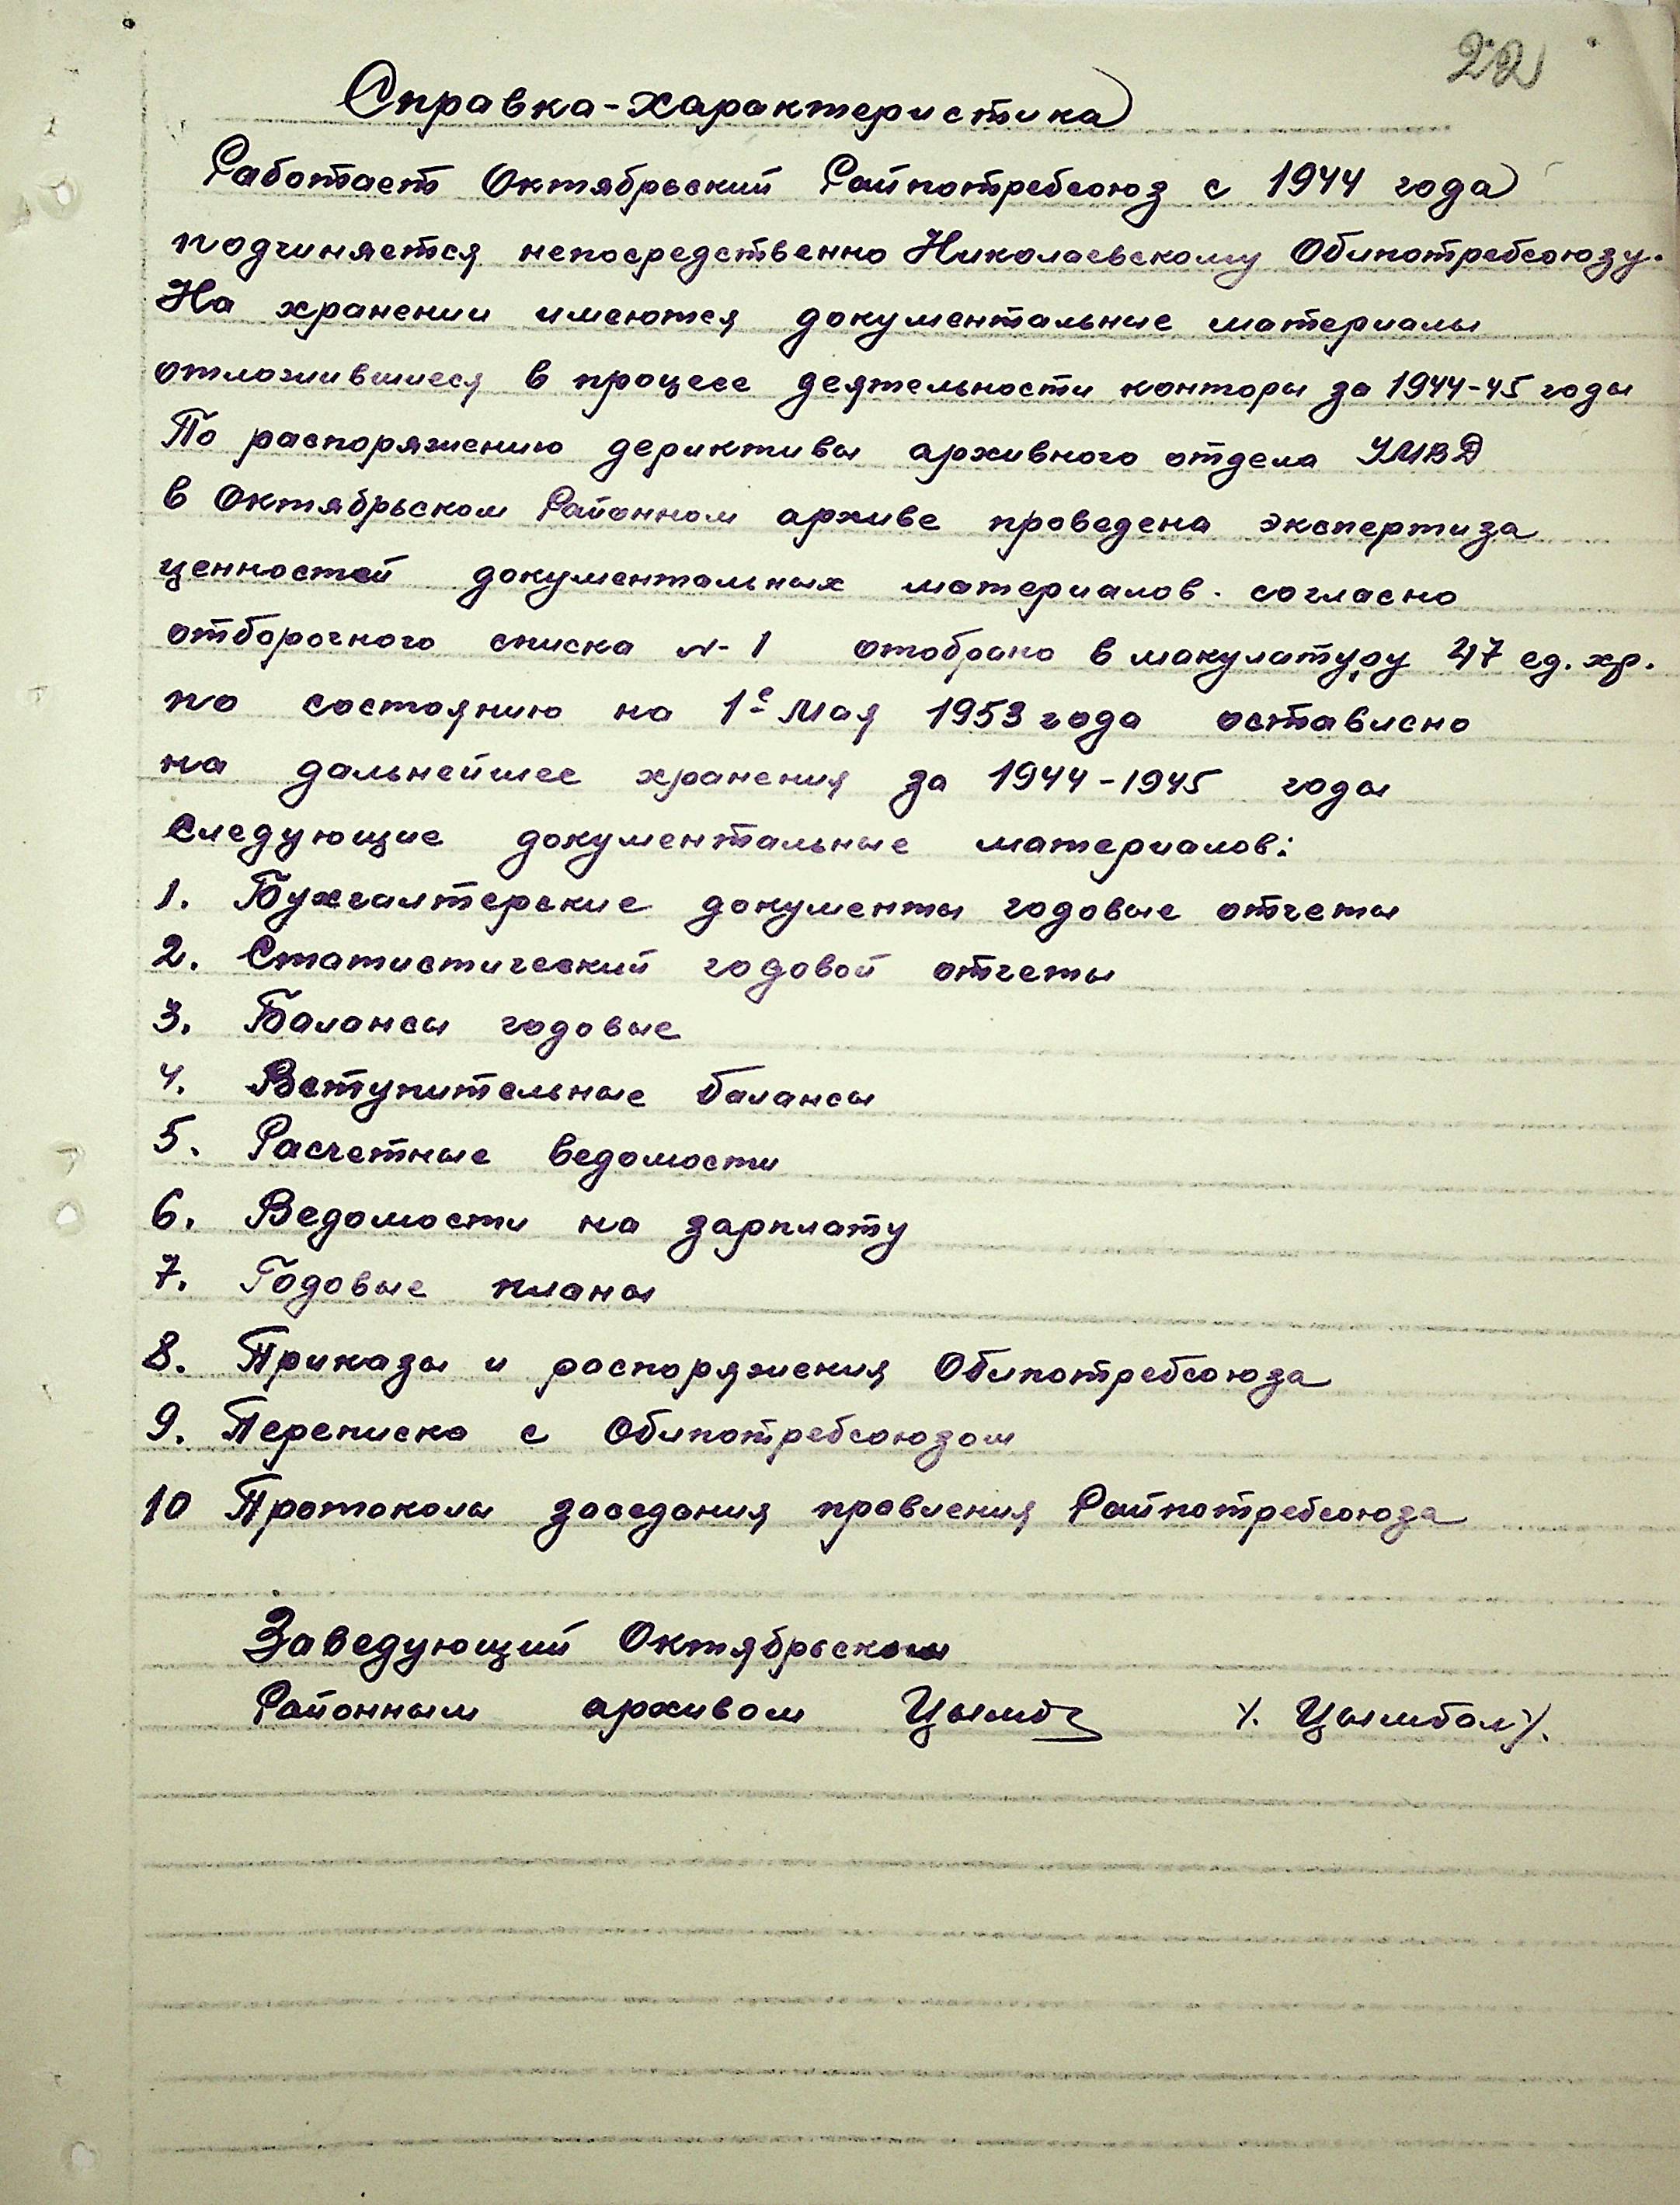 22
Справка-характеристика
Работает Октябрьский Райпотребсоюз с 1944 года
подчиняется непосредственно Николаевскому Облпотребсоюзу.
На хранении имеются документальные материалы
отложившиеся в процесе деятельности конторы за 1944-45 годы
По распоряжению дериктивы архивного отдела УМВД
в Октябрьском Районном архиве проведена экспертиза
ценностей документальных материалов. согласно
отборочного списка №1 отобрано в макулатуру 47 ед. хр.
по состоянию на 1е Мая 1953 года оставлено
на дальнейшее хранения за 1944-1945 годы
Следующие документальные материалов:
1. Бухгалтерские документы годовые отчеты
2. Статистический годовой отчеты
3. Балансы годовые
4. Вступительные балансы
5. Расчетные ведомости
6. Ведомости на зарплату
7. Годовые планы
8. Приказы и распоряжения Облпотребсоюза
9. Переписка с Облпотребсоюзом
10 Протоколы заседания правления Райпотребсоюза
Заведующий Октябрьском
Районным архивом Цымб /. Цымбал /.